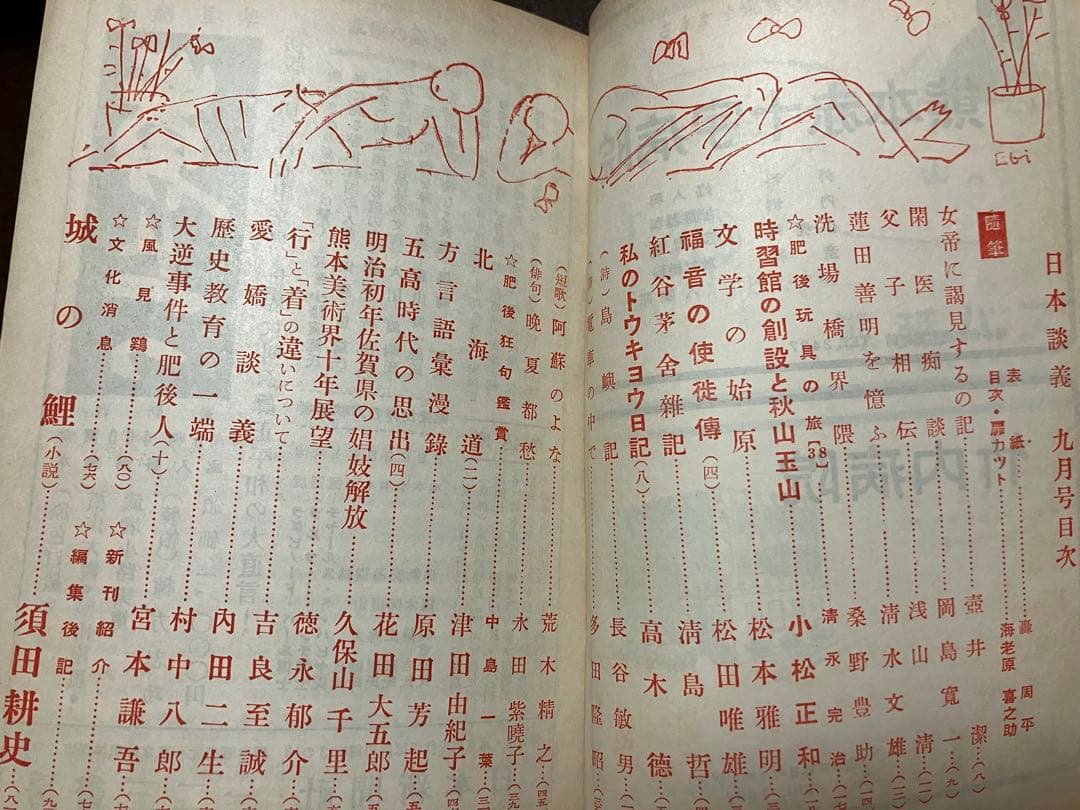 日本談義 九月号目次
表紙……轟周平
目次・扉カット……海老原喜之助
随筆
女帝に謁見するの記……壺井潔(八)
閑医痴談……岡島寛一(九)
父子相伝……浅山清(一
蓮田善明を憶ふ……清水文雄(
洗場橋界隈……桑野豊助(
☆肥後玩具の旅[38]……清永完治(
時習館の創設と秋山玉山……小松正和(
文学の始原……松本雅明
福音の使徒傳(四)……松田唯雄
紅谷茅舍雜記……清島哲
私のトウキヨウ日記(八)……高木徳
(詩)島嶼記……長谷敏男
電車の中で……多田隆昭
(短歌)阿蘇のよな……荒木精之(四五
(俳句)晩夏都愁……永田紫暁子(三九
☆肥後狂句鑑賞……中島一葉(三
北海道(二)……津田由紀子(四
方言語彙漫錄……原田芳起(
五高時代の思出(四)……花田大五郎(
明治初年佐賀県の娼妓解放……久保山千里(
熊本美術界十年展望……徳永郁介(
「行」と「着」の違いについて……吉良至誠(
愛嬌談義……内田二生(
歴史教育の一端……村中八郎(
大逆事件と肥後人(十)……宮本謙吾(
☆風見鶏……(八〇) ☆新刊紹介……(七
☆文化消息……(七六) ☆編集後記……(九
城の鯉(小説)……須田耕史(八
Ebi